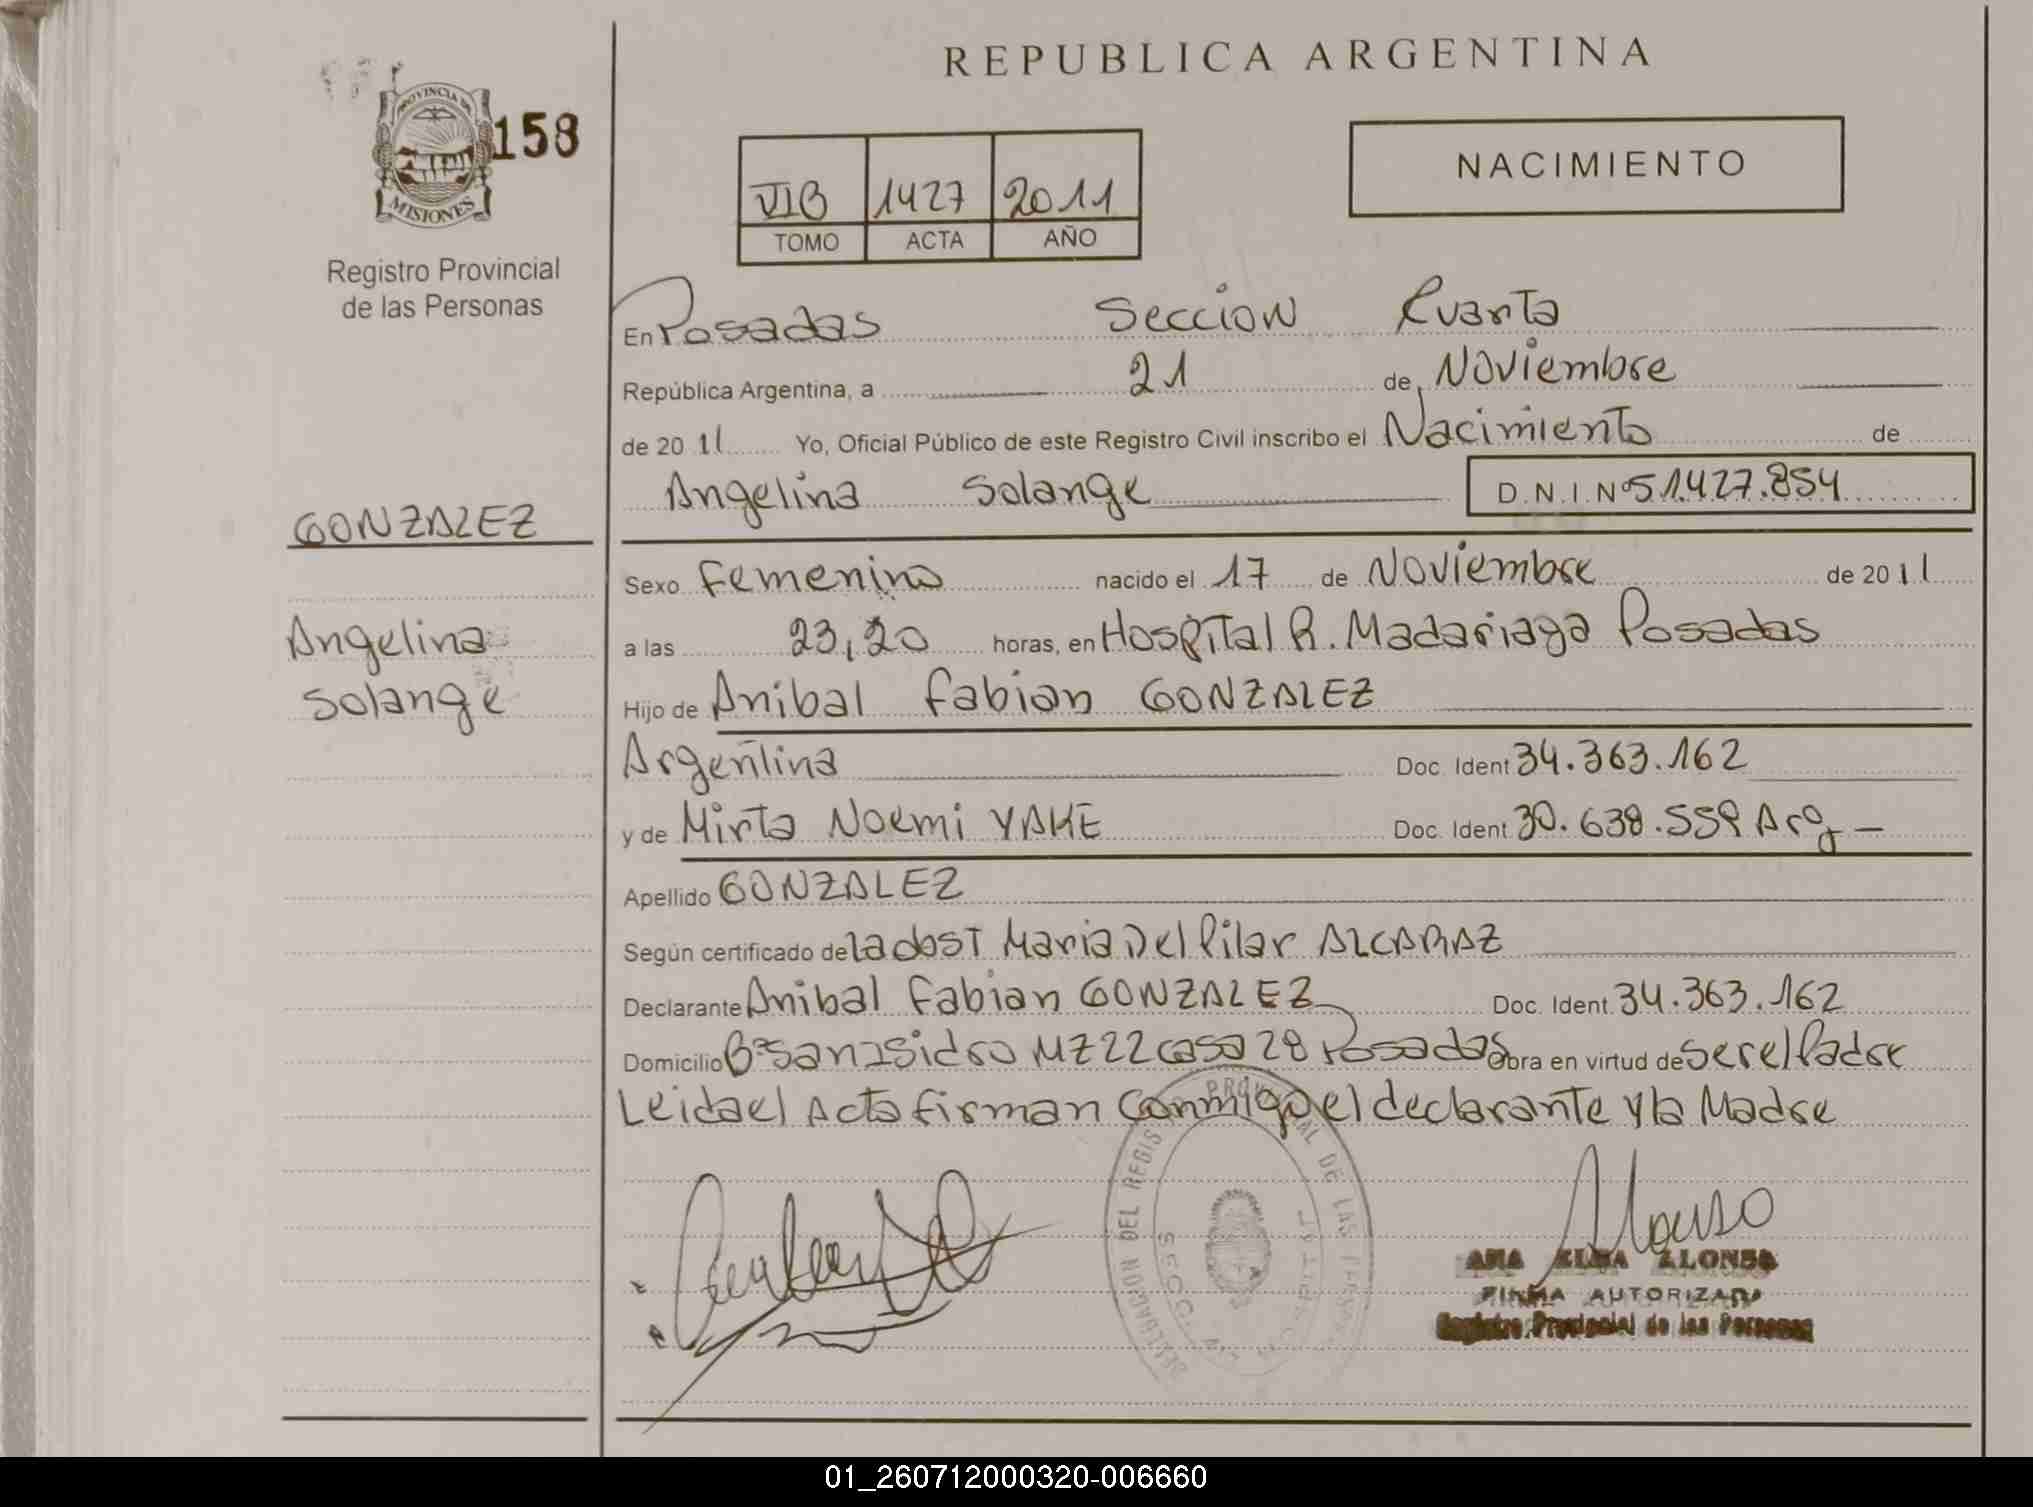 REPUBLICA ARGENTINA
PROVINCIA DE
MISIONES
158
NACIMIENTO
VIB 1427 2011
TOMO ACTA AÑO
Registro Provincial
de las Personas
En Posadas Seccion Cuarta
República Argentina, a 21 de Noviembre
de 2011 Yo, Oficial Público de este Registro Civil inscribo el Nacimiento de
Angelina Solange D.N.I. Nº 51.427.854
GONZALEZ
Angelina
Solange
Sexo Femenino nacido el 17 de Noviembre de 2011
a las 23,20 horas, en Hospital R. Madariaga Posadas
Hijo de Anibal Fabian GONZALEZ
Argentina Doc. Ident 34.363.162
y de Mirta Noemi YAKE Doc. Ident 30.638.559 Arg -
Apellido GONZALEZ
Según certificado de la obst Maria Del Pilar ALCARAZ
Declarante Anibal Fabian GONZALEZ Doc. Ident. 34.363.162
Domicilio Bº San Isidro MZ 22 casa 28 Posadas obra en virtud de ser el Padre
Leida el Acta firman conmigo el declarante y la Madre
DELEGACION DEL REGISTRO PROVINCIAL DE LAS PERSONAS
SECC.
Alonso
ANA ELBA ALONSO
FIRMA AUTORIZADA
Registro Provincial de las Personas
01_260712000320-006660